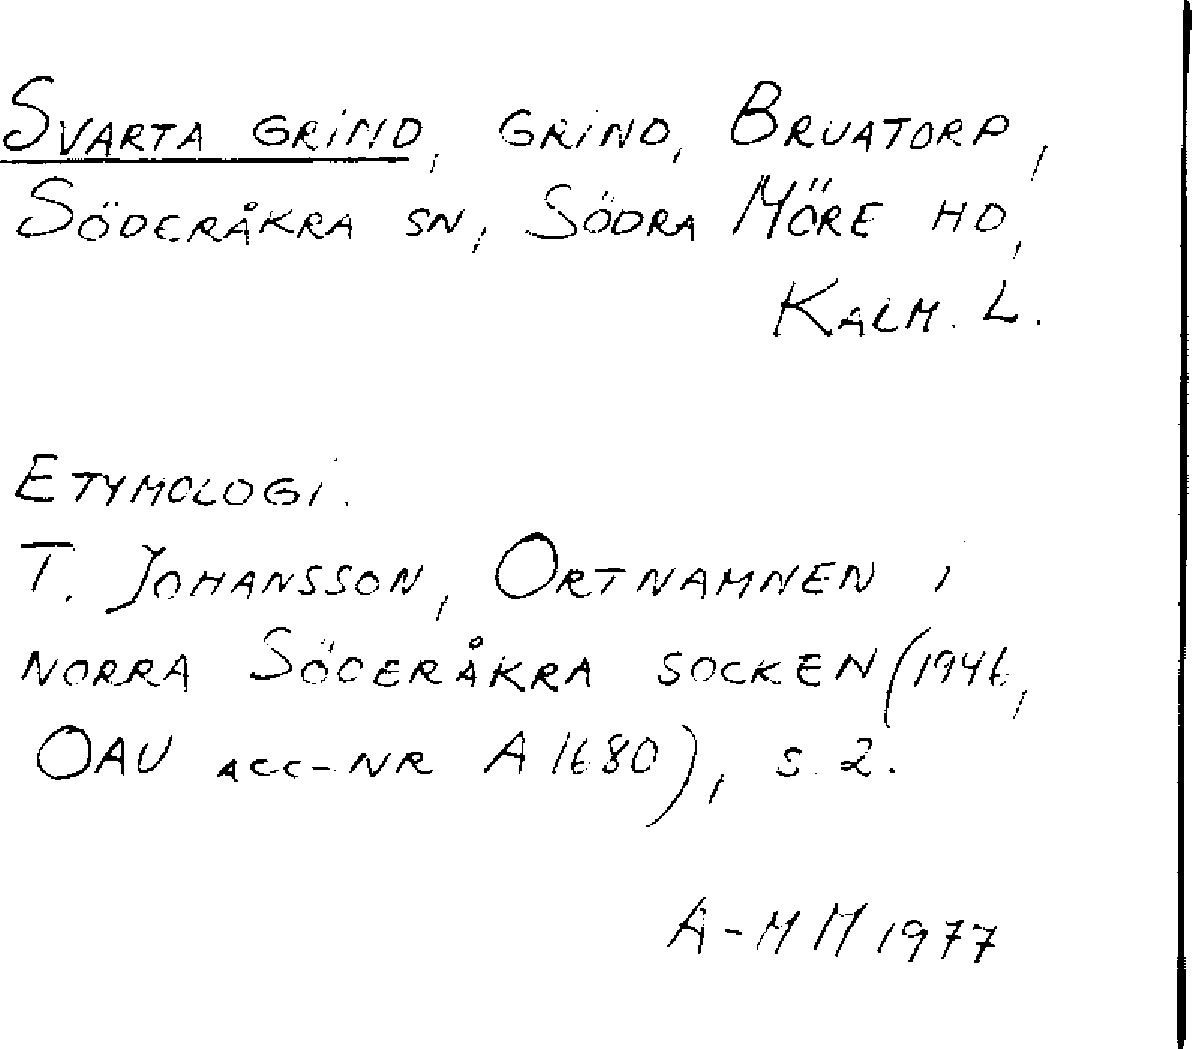 SVARTA GRIND, GRIND, BRUATORP,
SÖDERÅKRA SN, SÖDRA MÖRE HD,
KALM. L.
ETYMOLOGI.
T. JOHANSSON, ORTNAMNEN I
NORRA SÖDERÅKRA SOCKEN (1946,
OAU ACC-NR A 1680), S. 2.
A-MM 1977